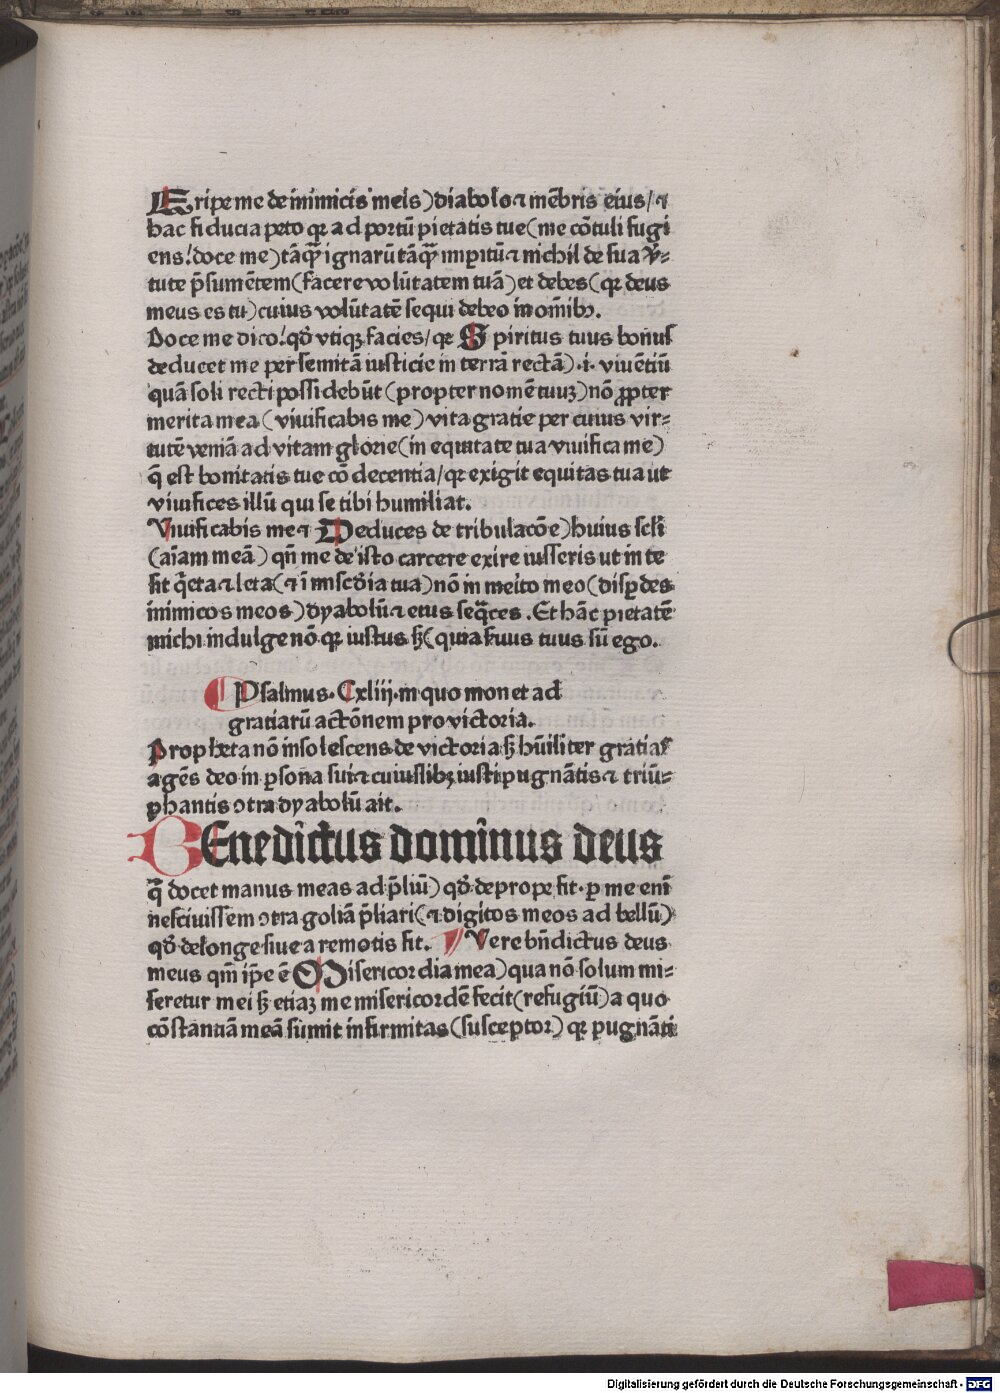 Eripe me de inimicis meis) diabolo ⁊ mēbris eius/ ⁊
hac fiducia peto qꝛ ad portū pietatis tue (me cōtuli fugi
ens! doce me) tāq̄ȝ ignarū tāq̄ȝ imꝑitū ⁊ nichil de sua v̄=
tute p̄sumētem (facere volūtatem tuā) et debes (qꝛ deus
meus es tu) cuius volūtatē sequi debeo in oīnibꝫ.
Doce me dico! qđ vtiqꝫ facies/ qꝛ Spiritus tuus bonus
deducet me per semitā iusticie in terrā rectā) .i. viuētiū
quā soli recti possidebūt (propter nomē tuuꝫ) nō ꝓpter
merita mea (viuificabis me) vita gratie per cuius vir=
tutē veniā ad vitam glorie (in equitate tua viuifica me)
q̄ est bonitatis tue cōdecentia/ qꝛ exigit equitas tua ut
viuifices illū qui se tibi humiliat.
Viuificabis me ⁊ Deduces de tribulacōe) huius scl̄i
(aīam meā) qn̄ me de isto carcere exire iusseris ut in te
sit q̄eta ⁊ leta (⁊ ī misc̄dia tua) nō in meito meo (disꝑdes
inimicos meos) dyabolū ⁊ eius seq̄ces. Et hāc pietatē
michi indulge nō qꝛ iustus sꝫ (quia seruus tuus sū ego.
Psalmus. Cxliij. in quo monet ad
gratiarū actōnem pro victoria.
Propheta nō insolescens de victoria sꝫ hūiliter gratias
agēs deo in ꝑsona sui ⁊ cuiuslibꝫ iusti pugnātis ⁊ triū=
phantis ꝯtra dyabolū ait.
BEnedictus dominus deus
q̄ docet manus meas ad p̄liū) qđ de prope fit. ꝑ me enī
nesciuissem ꝯtra goliā p̄liari (⁊ digitos meos ad bellū)
qđ de longe siue a remotis fit. Vere bn̄dictus deus
meus qm̄ ip̄e ē Misericordia mea) qua nō solum mi=
seretur mei sꝫ etiaꝫ me misericordē fecit (refugiū) a quo
cōstantiā meā sumit infirmitas (susceptor) qꝛ pugnāti
Digitalisierung gefördert durch die Deutsche Forschungsgemeinschaft - DFG